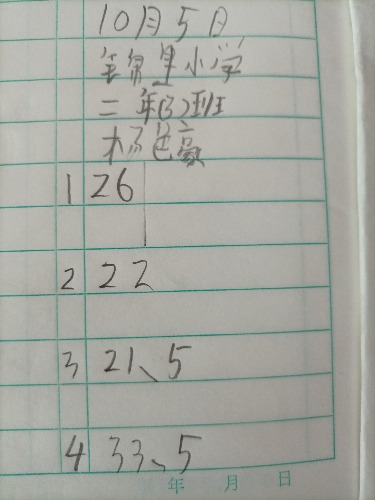 10月5日
里小学
二年(3)班
杨 豪
1 26
2 22
3 21、5
4 33、5
年 月 日